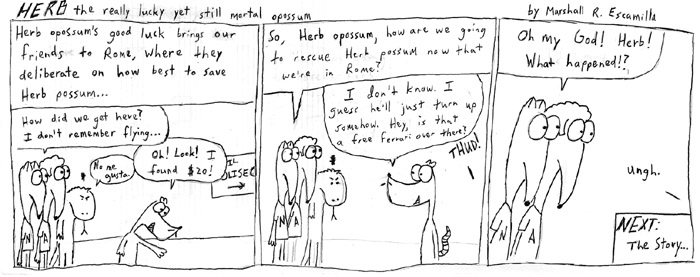 HERB the really lucky yet still mortal opossum
by Marshall R. Escamilla
Herb opossum's good luck brings our
friends to Rome, where they
deliberate on how best to save
Herb possum...
How did we get here?
I don't remember flying...
No me
gusta.
Oh! Look! I
found $20!
IL
OLISEO
So, Herb opossum, how are we going
to rescue Herb possum now that
we're in Rome?
I don't know. I
guess he'll just turn up
somehow. Hey, is that
a free Ferrari over there?
THUD!
Oh my God! Herb!
What happened!?
ungh.
NEXT:
The Story...
N
A
N
A
N
A